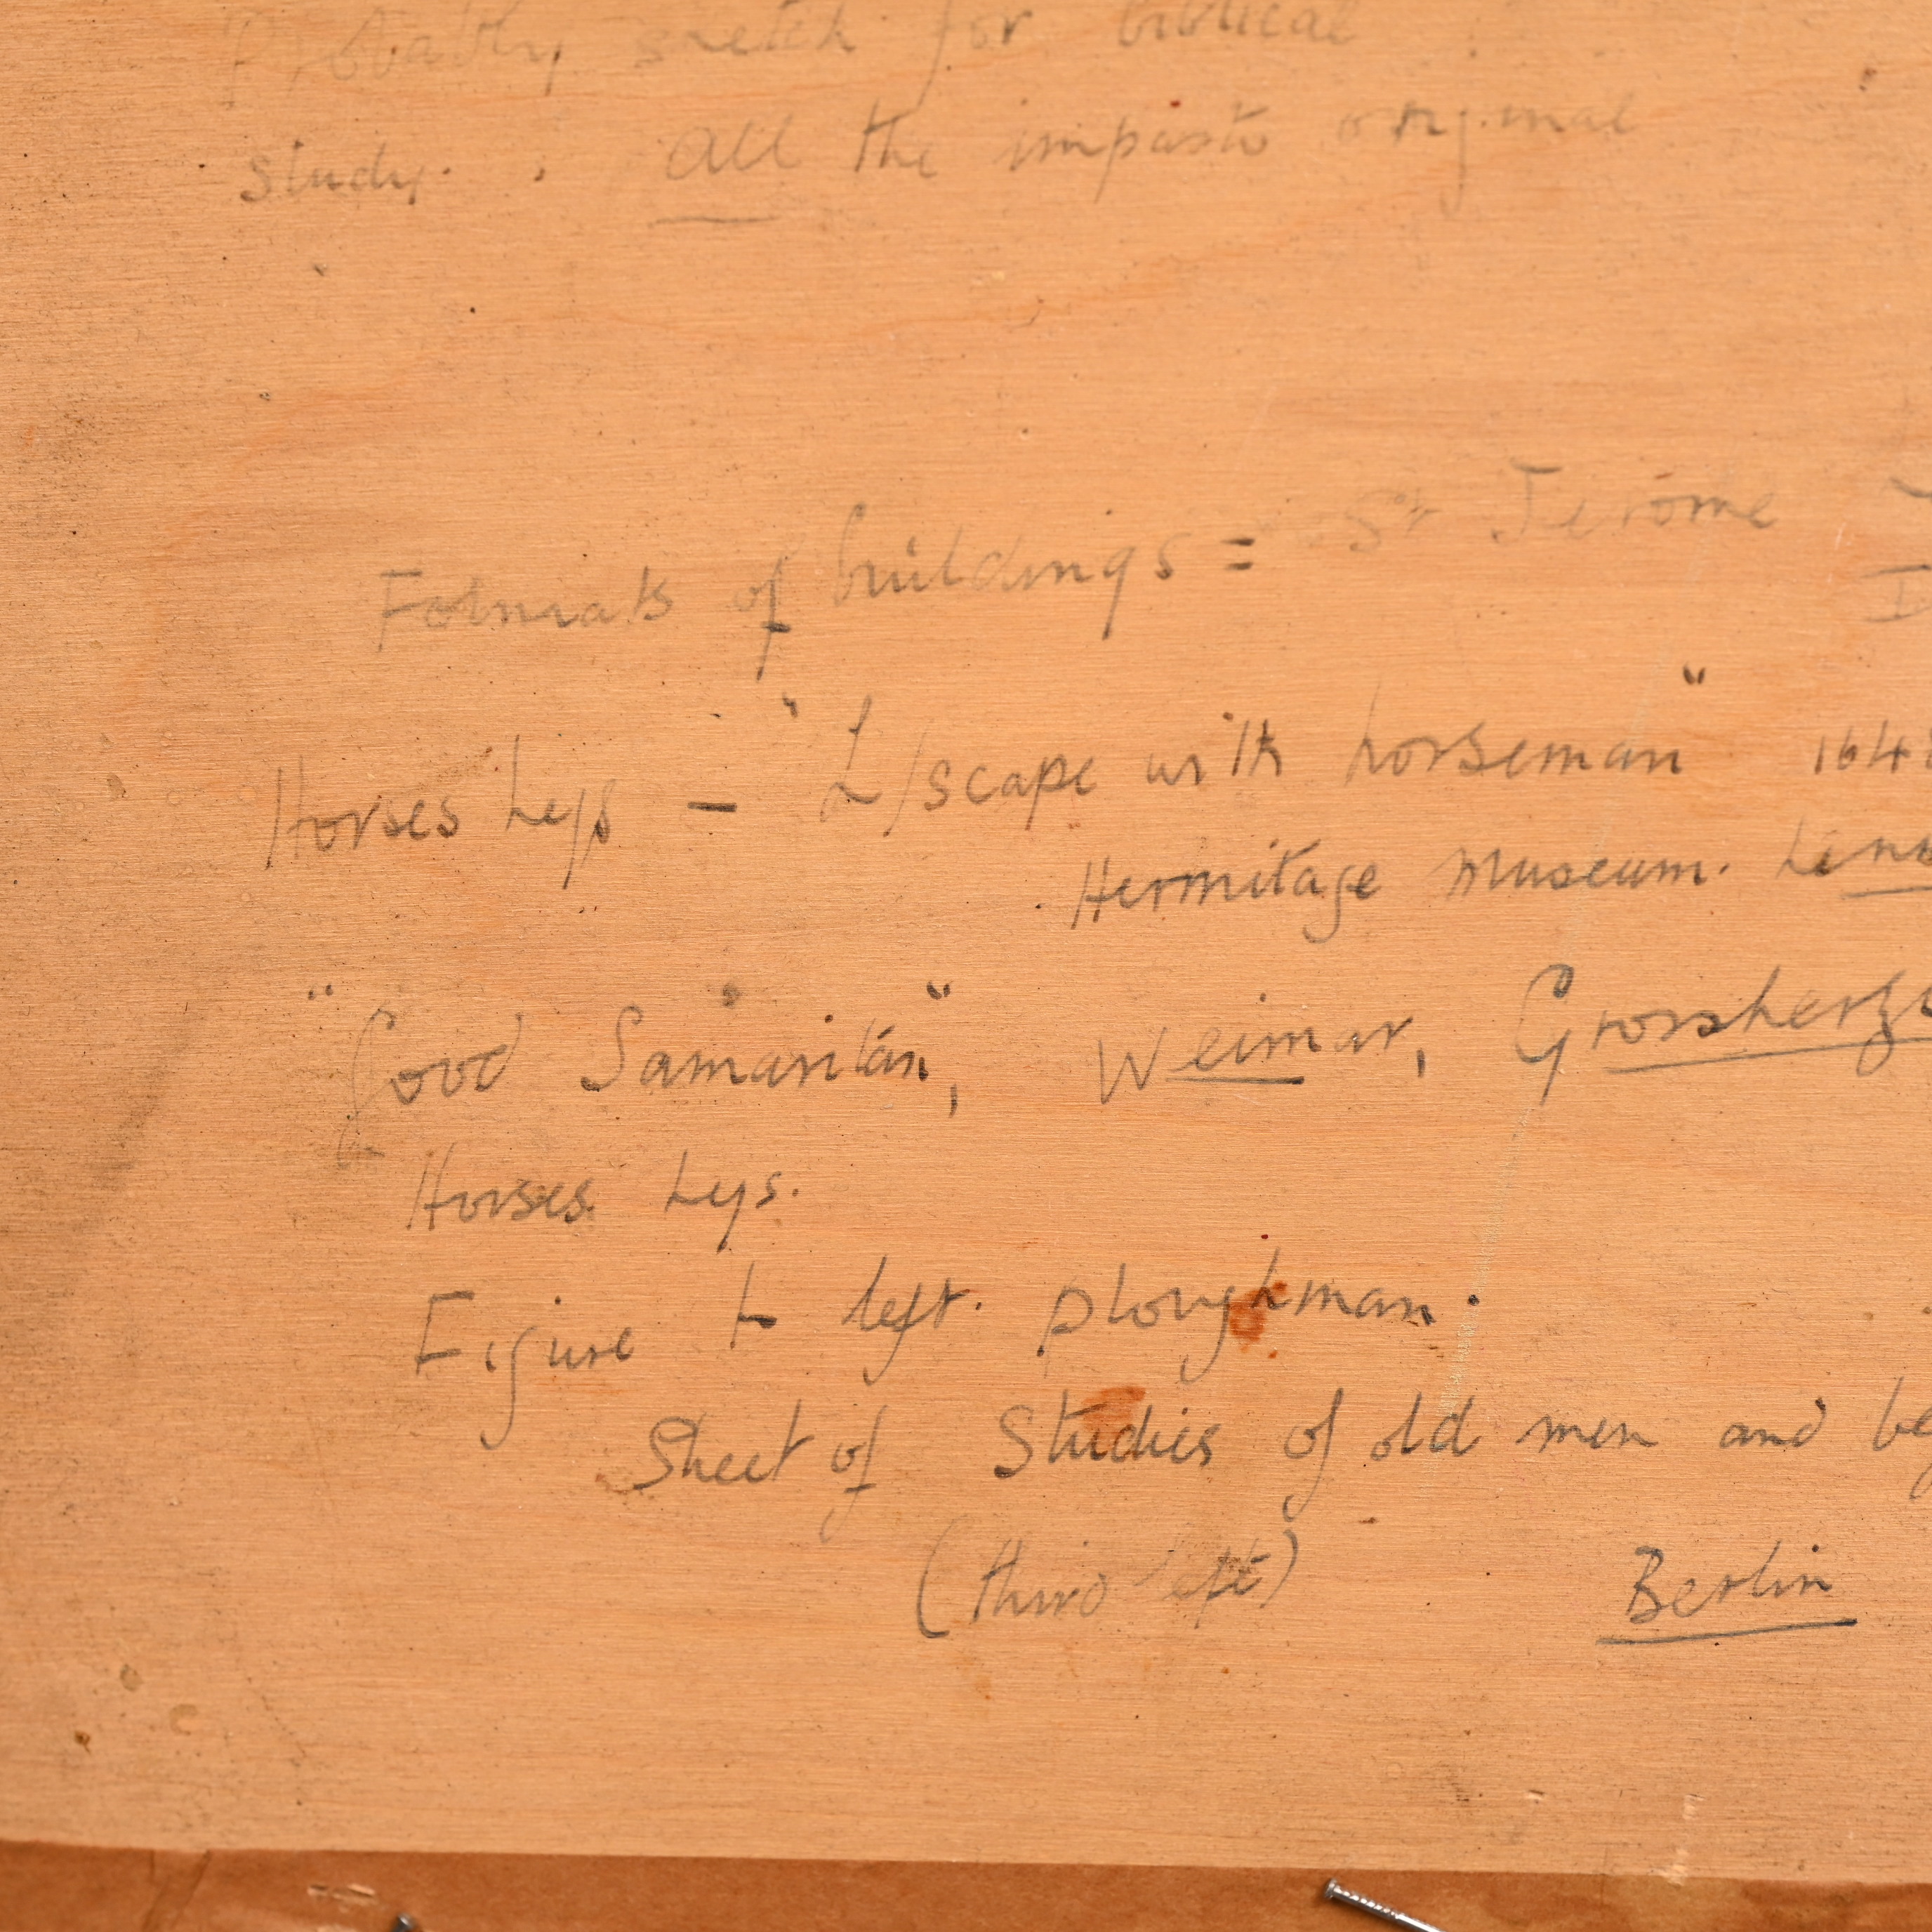 Probably sketch for biblical
study. All the impasto original
Formats of buildings = St Jerome
Horses Legs - "L/scape with horseman" 164
Hermitage Museum.
"Good Samaritan", Weimar, Grossherz
Horses Legs.
Figure to left. ploughman.
Sheet of Studies of old men and be
(third left) Berlin